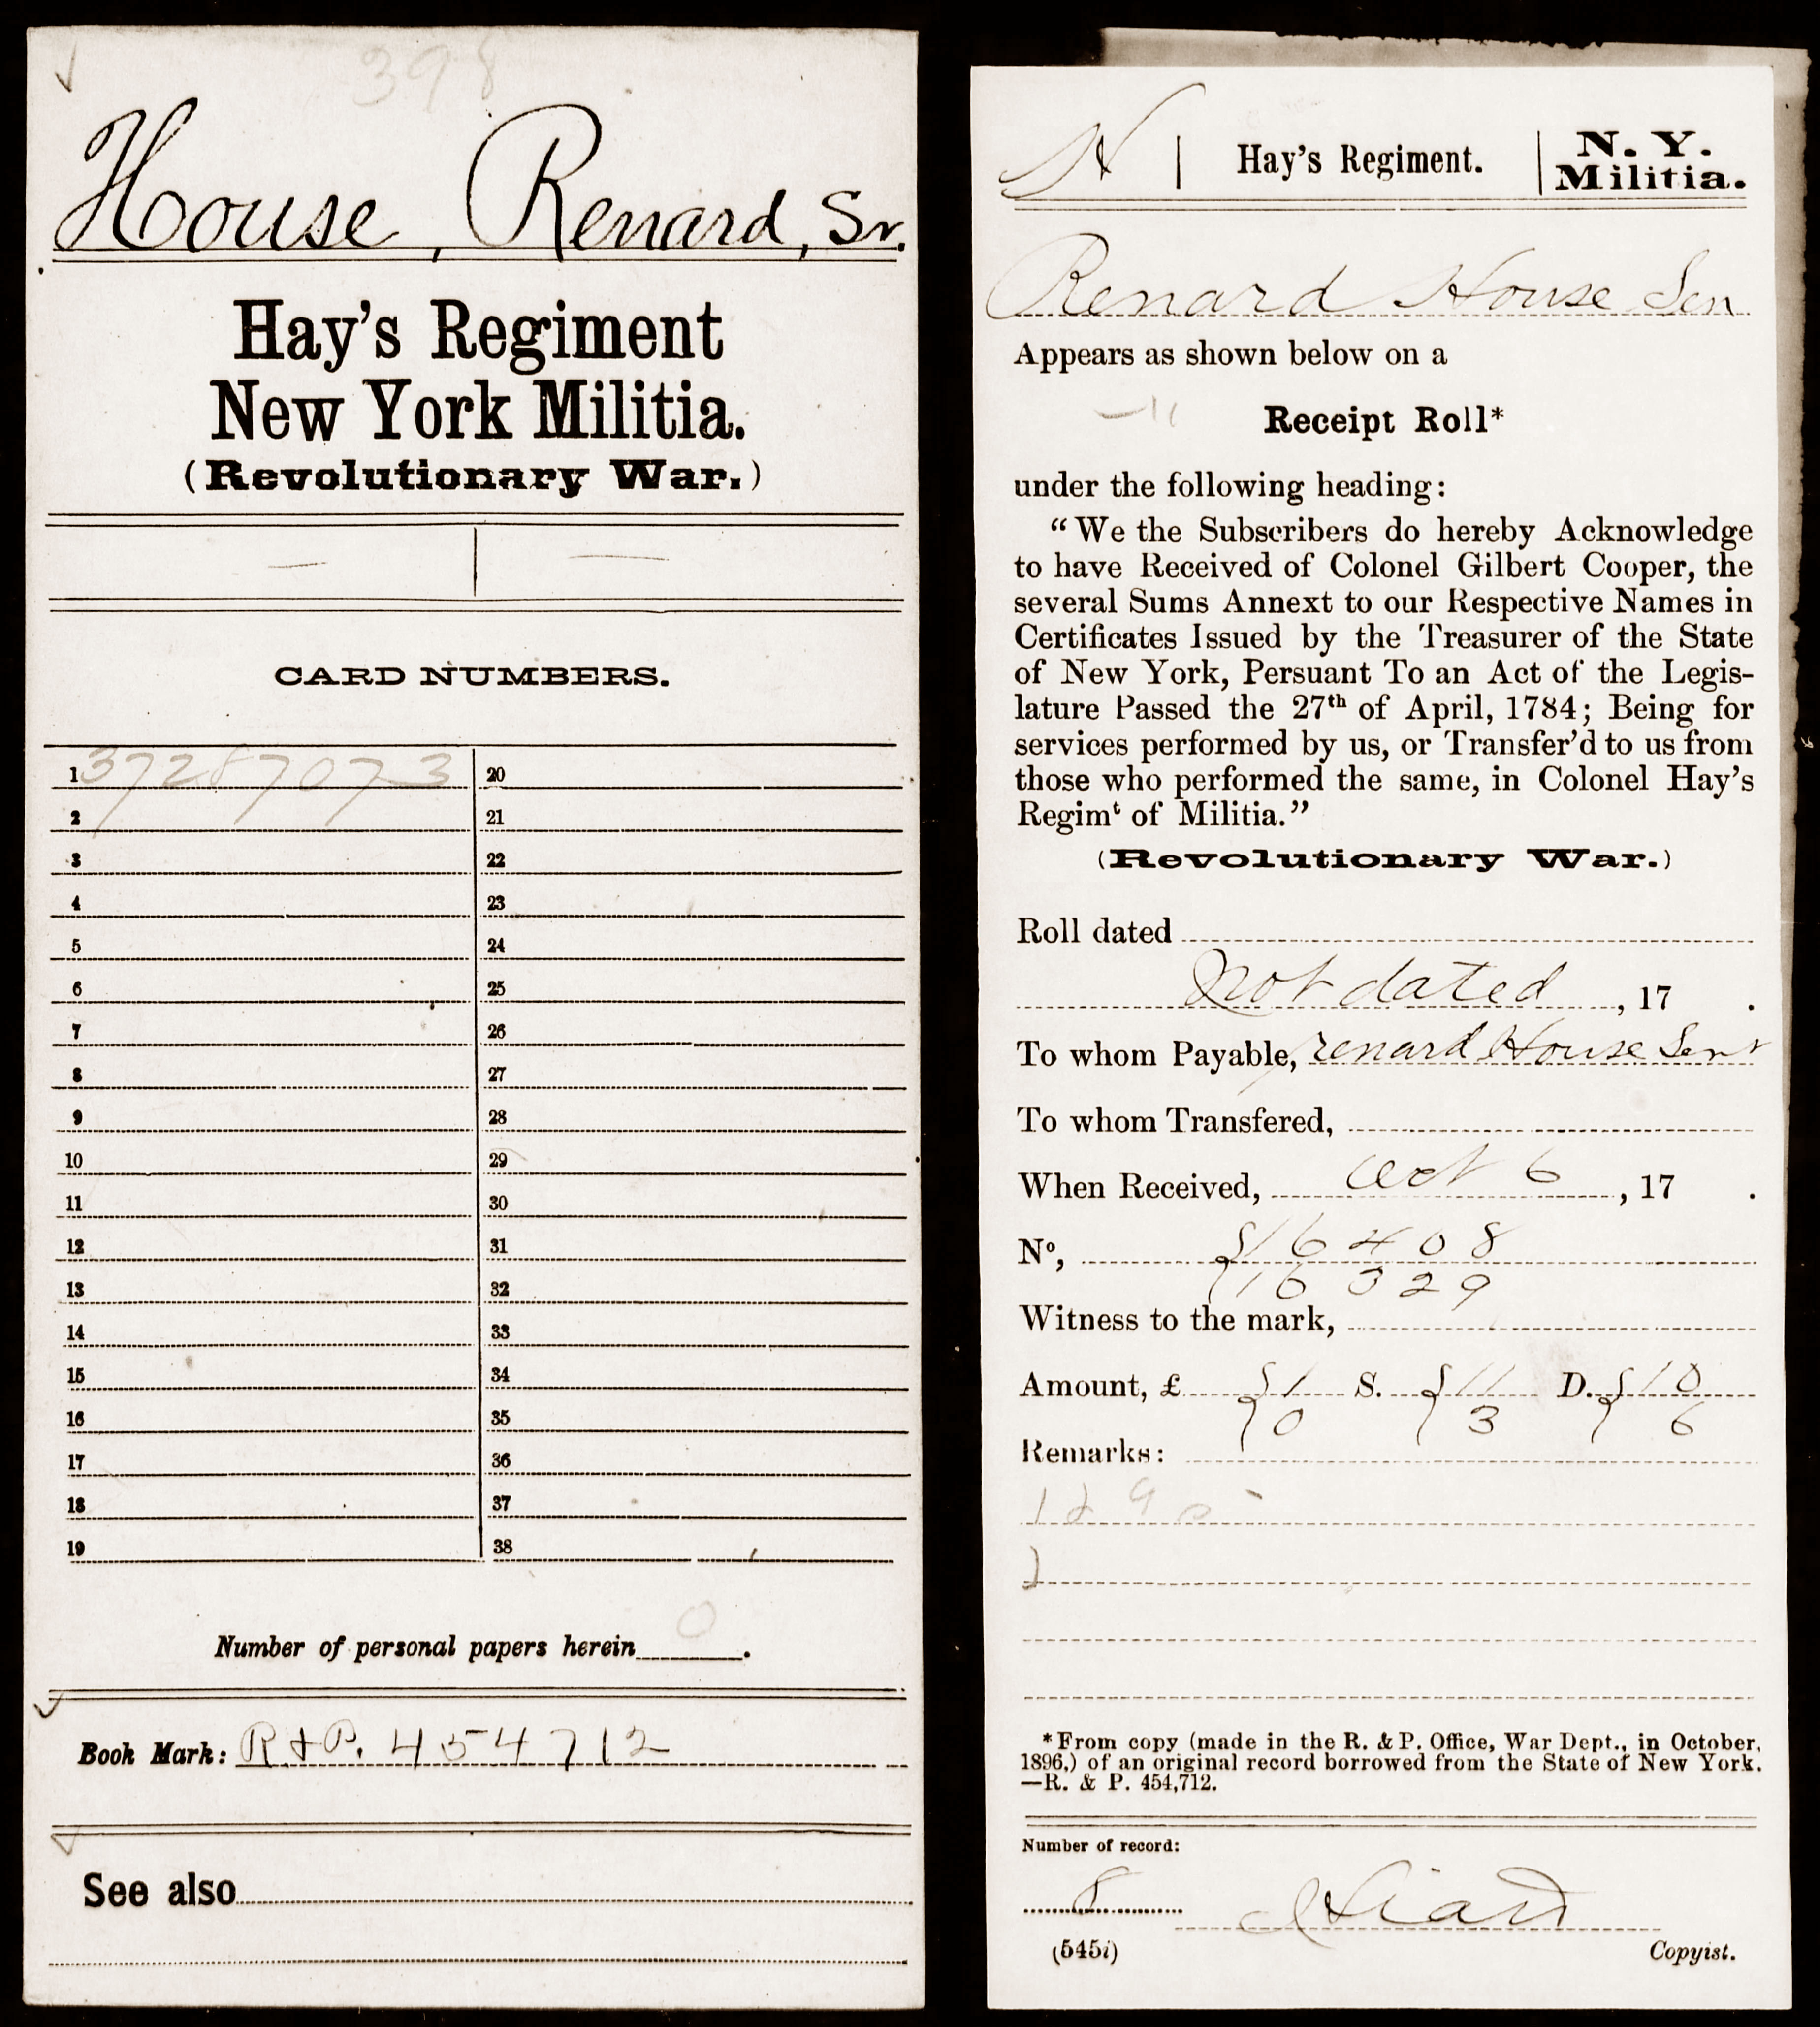 398
House, Renard, Sr.
Hay's Regiment
New York Militia.
(Revolutionary War.)
— | —
CARD NUMBERS.
1 37287073
2
3
4
5
6
7
8
9
10
11
12
13
14
15
16
17
18
19
20
21
22
23
24
25
26
27
28
29
30
31
32
33
34
35
36
37
38
Number of personal papers herein 0.
Book Mark: R & P. 454712
See also
H | Hay's Regiment. | N. Y. Militia.
Renard House Sen
Appears as shown below on a
Receipt Roll*
under the following heading:
"We the Subscribers do hereby Acknowledge
to have Received of Colonel Gilbert Cooper, the
several Sums Annext to our Respective Names in
Certificates Issued by the Treasurer of the State
of New York, Persuant To an Act of the Legis-
lature Passed the 27th of April, 1784; Being for
services performed by us, or Transfer'd to us from
those who performed the same, in Colonel Hay's
Regimt of Militia."
(Revolutionary War.)
Roll dated
not dated, 17 .
To whom Payable, renard House Senr
To whom Transfered,
When Received, Oct 6, 17 .
No, { 16408
{ 16329
Witness to the mark,
Amount, £ { 1 S. { 11 D. { 10
{ 0 { 3 { 6
Remarks:
*From copy (made in the R. & P. Office, War Dept., in October,
1896,) of an original record borrowed from the State of New York.
—R. & P. 454,712.
Number of record:
8
(545i) Copyist.